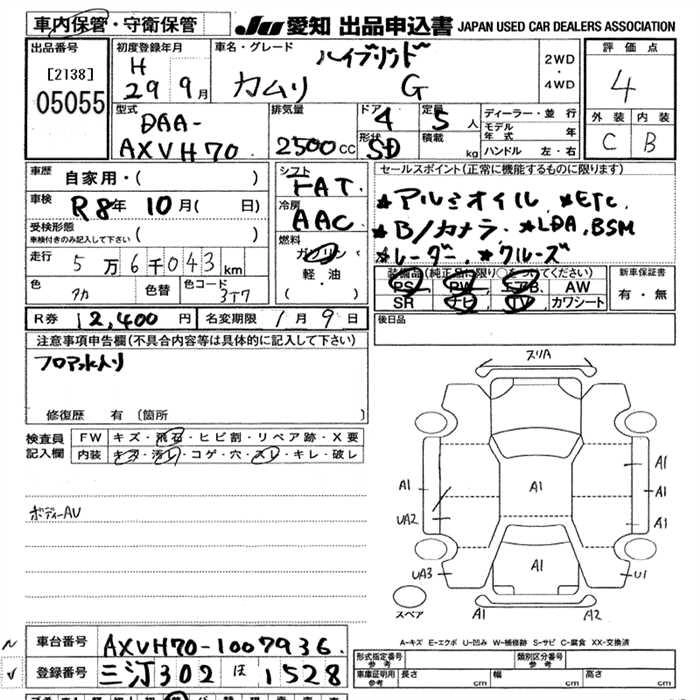 車内保管・守衛保管
JU 愛知 出品申込書 JAPAN USED CAR DEALERS ASSOCIATION
出品番号
[2138]
05055
初度登録年月
H
29 9月
車名・グレード
ハイブリッド
カムリ G
2WD
・
4WD
評価点
4
外装 内装
C B
型式
DAA-
AXVH70
排気量
2500cc
ドア 4
形状 SD
定員 5人
積載 kg
ディーラー・並行
モデル年式 年
ハンドル 左・右
車歴 自家用・( )
車検 R8年 10月( 日)
受検形態
車検付きのみ記入して下さい ( )
走行 5万6千043km
色 アカ 色替 色コード 3T7
シフト
FAT
冷房
AAC
燃料
ガソリン
軽・油
( ・ )
セールスポイント(正常に機能するものに限ります)
★アルミオイル ★ETC
★B/カメラ ★LDA, BSM
★レーダー ★クルーズ
装備品(純正品に限り○をつけてください)
PS PW エアB. AW
SR ナビ TV カワシート
新車保証書
有・無
R券 12,400円 名変期限 1月9日
後日品
注意事項申告欄(不具合内容等は具体的に記入して下さい)
修復歴 有 〔箇所 〕
検査員
記入欄
FW キズ・飛石・ヒビ割・リペア跡・X要
内装 キズ・汚レ・コゲ・穴・スレ・キレ・破レ
ボディーAU
スリA
A1
A1
A1
A1
A1
A1
UA2
A1
UA3
U1
スペア
A1
A2
A-キズ E-エクボ U-凹み W-補修跡 S-サビ C-腐食 XX-交換済
車台番号 AXVH70-1007936.
登録番号 302 ほ 1528
形式指定番号
参考
類別区分番号
参考
車庫証明用
参考
長さ cm 幅 cm 高さ cm